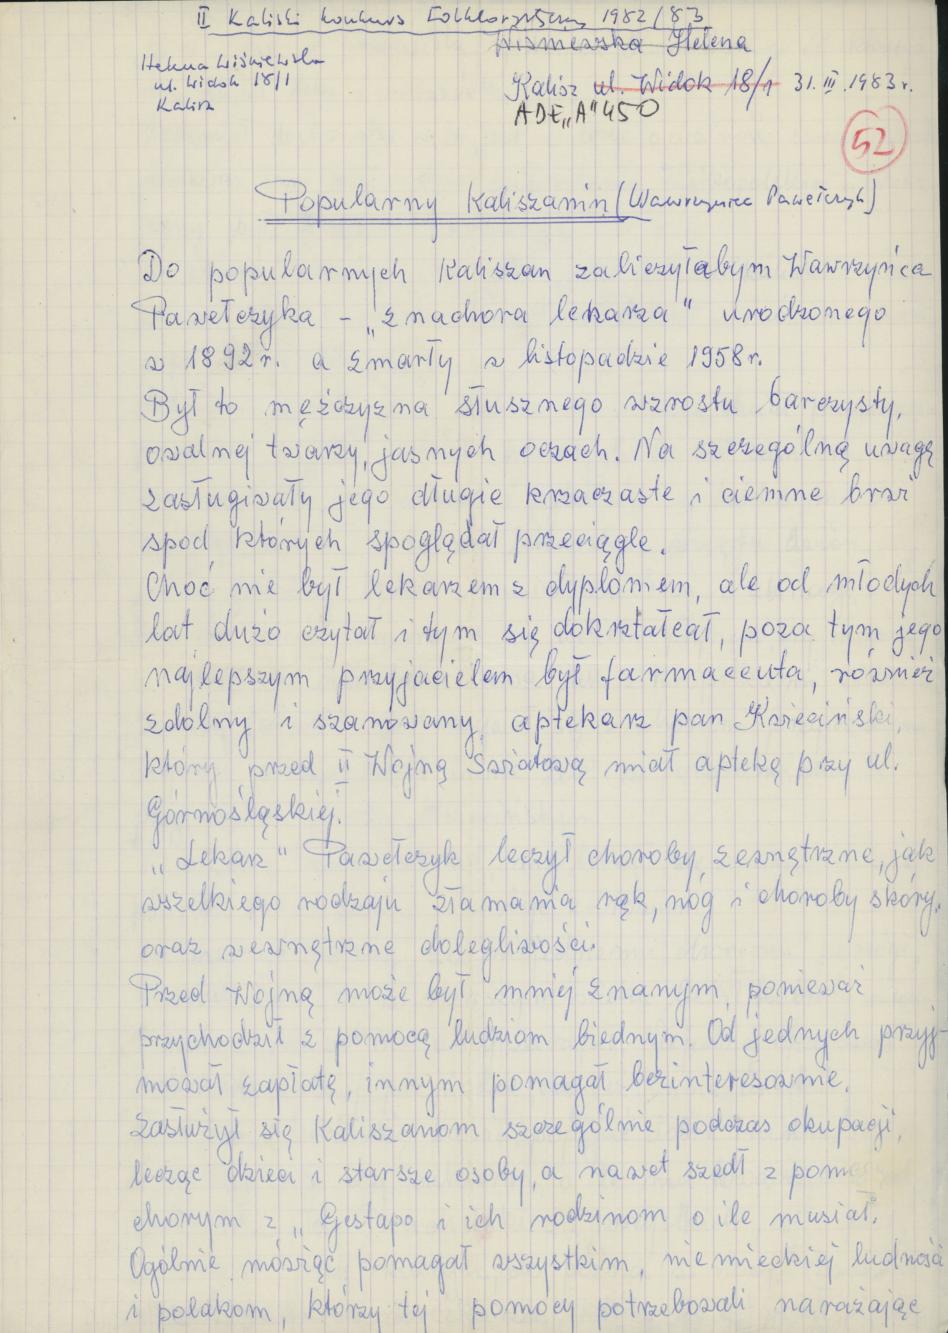 II Kaliski konkurs Folklorystyczny 1982/83
Wiśniewska Helena
Helena Wiśniewska
ul. Widok 18/1
Kalisz
Kalisz ul. Widok 18/1 31. III. 1983 r.
ADE „A" 450
52
Popularny Kaliszanin (Wawrzyniec Pawełczyk)
Do popularnych Kaliszan zaliczyłabym Wawrzyńca
Pawełczyka – „znachora lekarza" urodzonego
w 1892 r. a zmarły w listopadzie 1958 r.
Był to mężczyzna słusznego wzrostu barczysty,
owalnej twarzy, jasnych oczach. Na szczególną uwagę
zasługiwały jego długie krzaczaste i ciemne brwi
spod których spoglądał przeciągle.
Choć nie był lekarzem z dyplomem, ale od młodych
lat dużo czytał i tym się dokształcał, poza tym jego
najlepszym przyjacielem był farmaceuta, również
zdolny i szanowany, aptekarz pan Kwieciński,
który przed II Wojną Światową miał aptekę przy ul.
Górnośląskiej.
„Lekarz" Pawełczyk leczył choroby zewnętrzne, jak
wszelkiego rodzaju złamania rąk, nóg i choroby skóry.
oraz wewnętrzne dolegliwości.
Przed Wojną może był mniej znanym, ponieważ
przychodził z pomocą ludziom biednym. Od jednych przyj-
mował zapłatę, innym pomagał bezinteresownie.
Zasłużył się Kaliszanom szczególnie podczas okupacji,
lecząc dzieci i starsze osoby, a nawet szedł z pomocą
chorym z „Gestapo i ich rodzinom o ile musiał.
Ogólnie mówiąc pomagał wszystkim, niemieckiej ludność
i polakom, którzy tej pomocy potrzebowali narażając